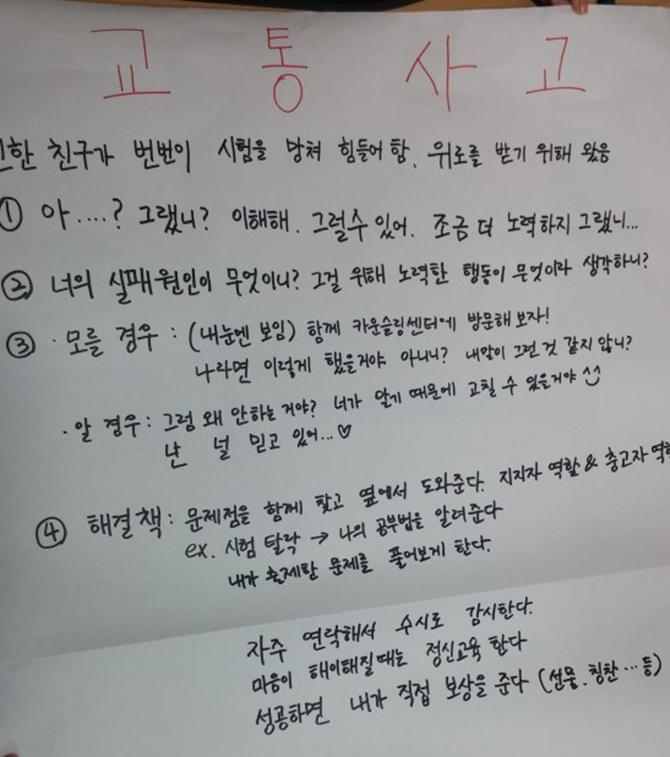 교통사고
친한 친구가 번번이 시험을 망쳐 힘들어함. 위로를 받기 위해 왔음
① 아....? 그랬니? 이해해. 그럴수있어. 조금 더 노력하지 그랬니...
② 너의 실패원인이 무엇이니? 그걸 위해 노력한 행동이 무엇이라 생각하니?
③ · 모를 경우 : (내눈엔 보임) 함께 카운슬링센터에 방문해보자!
나라면 이렇게 했을거야 아니니? 내말이 그런 것 같지 않니?
· 알 경우 : 그럼 왜 안하는거야? 너가 알기 때문에 고칠 수 있을거야
난 널 믿고 있어...♡
④ 해결책 : 문제점을 함께 찾고 옆에서 도와준다. 지지자 역할 & 충고자 역할
ex. 시험 탈락 → 나의 공부법을 알려준다
내가 출제한 문제를 풀어보게 한다.
자주 연락해서 수시로 감시한다.
마음이 해이해질때는 정신교육 한다
성공하면 내가 직접 보상을 준다 (선물. 칭찬... 등)